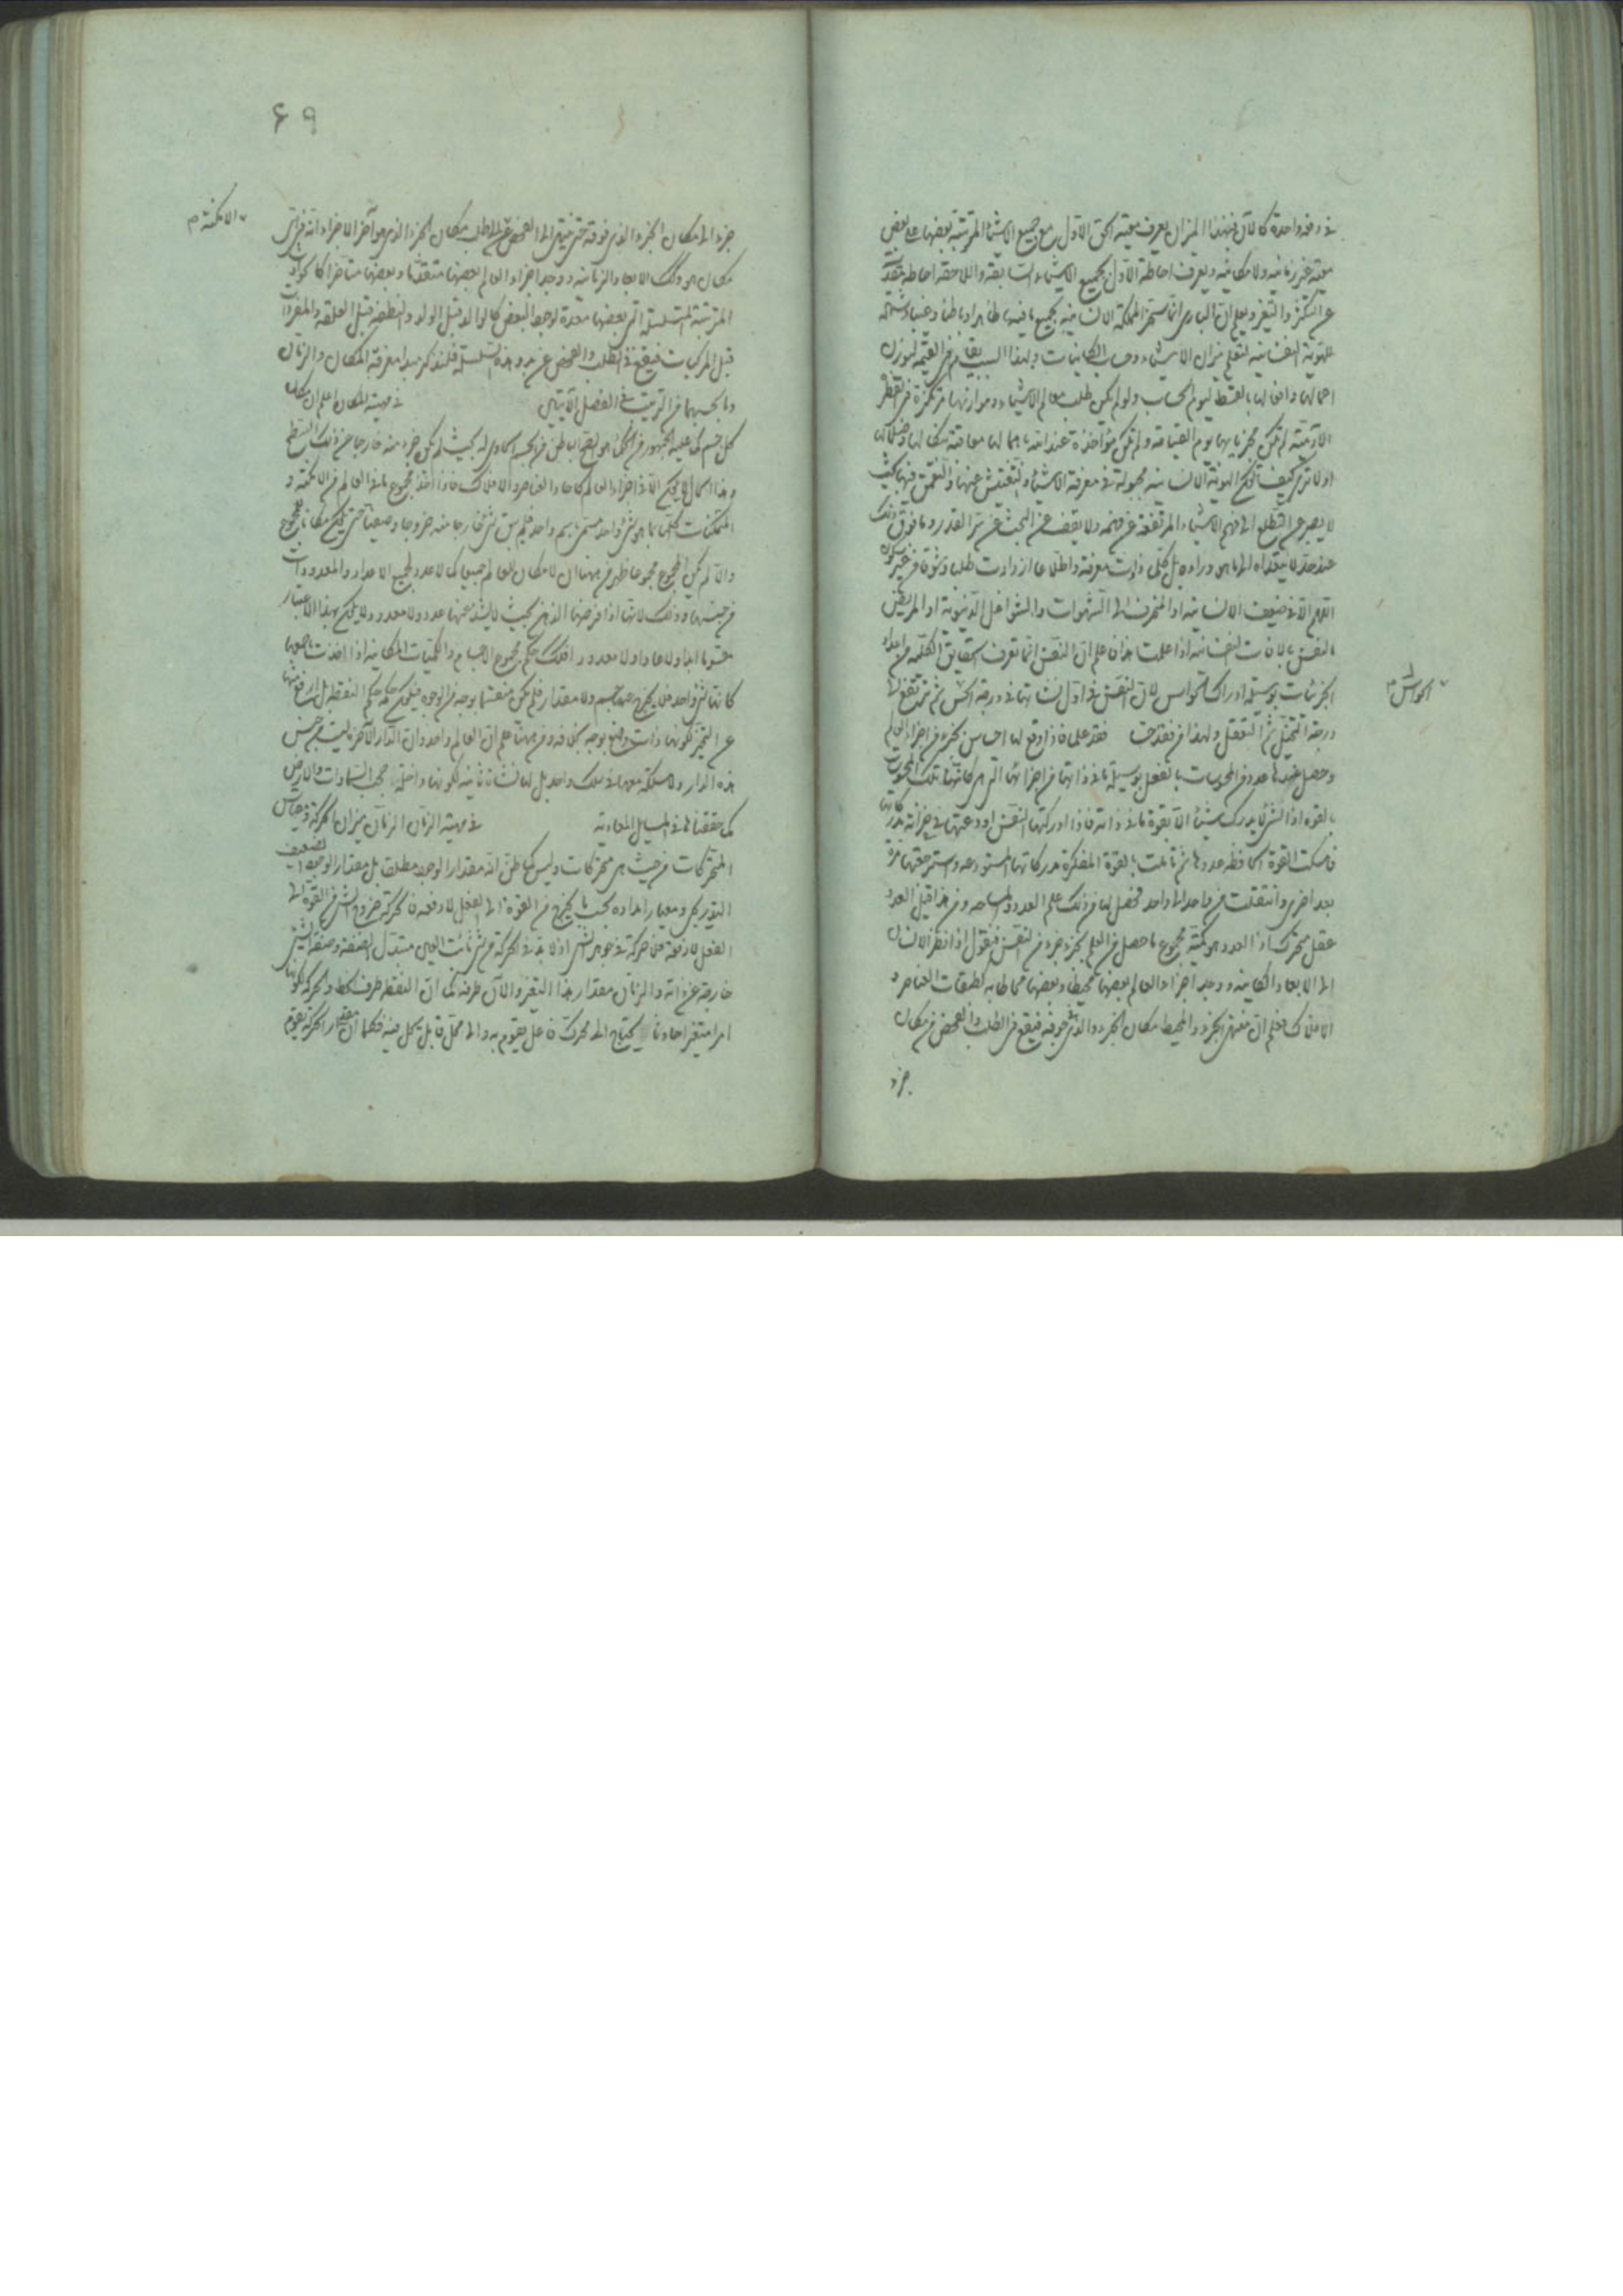 في دفعة واحدة كالآن فبهذا الميزان يعرف معية الحق الاول مع جميع الاشياء المترتبة بعضها على بعض
معية غير زمانية ولا مكانية ويعرف احاطة الاول بجميع الاشياء السابقة واللاحقة احاطة
عن التكثر والتغير ويعلم ان الباري انما المملكة الانسانية بجميع ما فيها ظاهرا وباطنا وغيبا وشهادة
للهوية النفسانية لتعلم ميزان الاشياء وحساب الكائنات ولهذا السبب يقام في القيمة لوزن
اعمالها وافعالها بالقسط ليوم الحساب ولو لم يكن طلب معالم الاشياء وموازنها مرتكزة في الفطرة
الآدمية لم تكن مجزية بها يوم القيامة ولم تكن مؤاخذة عند الله باهمالها معاقبة
اولا ترى كيف تكون الهوية الانسانية مجبولة في معرفة الاشياء والتفتيش عنها والتعمق فيها بحيث
لا يصبر عن التطلع الى فهم الاشياء المرتفعة عن فهمه ولا يقف عن البحث عن سر القدر وما فوق ذلك
عند حد لا يتعداه الى ما هو وراءه بل كلما زادت معرفة واطلاعا ازدادت طلبا وشوقا من غير سكون
اللهم الا في ضعيف الانسانية او المنحرف الى الشهوات والشواغل الدنيوية او المريض
النفس بالآفات النفسانية اذا علمت هذا فاعلم ان النفس انما تعرف الحقايق الكلية من اعداد
الجزئيات بوسيلة ادراك الحواس لان النفس في اول نشأتها في درجة الحس ثم ترتفع الى
درجة التخيل ثم التعقل ولهذا من فقد حسا فقد علما فاذا وقع لها احساس بجزء من اجزاء العالم
وحصل عندها عدد من المحسوسات بالفعل بوسيلة ما في ذاتها من اجزائها التي هي كانها تلك المحسوسات
بالقوة اذ الشيء لا يدرك شيئا الا بقوة ما في ذاته فاذا ادركتها النفس اودعتها في خزانة مدركاتها
فامسكت القوة الحافظة عددها ثم تأملت بالقوة المفكرة مدركاتها المستودعة واسترجعتها مرة
بعد اخرى وانتقلت من واحد الى واحد فحصل لها من ذلك علم العدد والمساحة ومن هذا قيل العدد
عقل متحرك اذ العدد هو كمية مجموع ما حصل من العلم بجزء جزء في النفس فنقول اذا نظر الانسان
الى الابعاد المكانية ووجد اجزاء العالم بعضها محيطا وبعضها محاطا به كطبقات العناصر و
الافلاك فعلم ان منتهى الجزء والمحيط مكان الجزء والذي فوقه فيقع في الطلب والفحص من مكان
جزء
الحواس م
۶۹
جزء الى مكان الجزء الذي فوقه حتى ينتهي الى الفحص عن طلب مكان الجزء الذي هو آخر الاجزاء انه في اي
مكان هو وكذلك الابعاد الزمانية ووجد اجزاء العالم بعضها متقدما وبعضها متأخرا كالحوادث
المترتبة المتسلسلة التي بعضها معدة لوجود البعض كالوالد قبل الولد والنطفة قبل العلقة والمفردات
قبل المركبات فيقع في الطلب والفحص عن بدو هذه السلسلة فلنذكر مبدأ معرفة المكان والزمان
وما يجب بهما من الترتيب في الفصل الآتيين في مهية المكان اعلم ان مكان
كل جسم كما عليه الجمهور من الحكماء هو السطح الباطن من الجسم الحاوي له بحيث لم يكن جزء منه خارجا عن ذلك السطح
وهذا المكان لا يكون الا في اجزاء العالم كآحاد العناصر والافلاك فاذا اخذ مجموع ما في العالم من الامكنة و
المتمكنات كلها بما هو شيء واحد مسمى باسم واحد فلم يبق شيء خارجا منه خروجا وضعيا حتى يكون مكانا للمجموع
والا لم يكن المجموع مجموعا فظهر من ههنا ان لا مكان للعالم جميعا كما لا عدد لجميع الاعداد والمعدودات
من حيثها وذلك لانها اذا فرضها الذهن بحيث لا يشذ عنها عدد ولا معدود ولا يكون بهذا الاعتبار
ولا عادا ولا معدودا فكذلك حكم مجموع الاجسام والكميات المكانية اذا اخذت باجمعها
كانت شيئا واحدا فلا يخرج عنه جسم ولا مقدار فلم يكن منقسما بوجه من الوجوه فيكون حكمه حكم النقطة بل ارفع منها
عن التحيز لكونها ذات وضع بوجه بخلافه ومن ههنا علم ان العالم واحد وان الدار الآخرة ليست من جنس
هذه الدار ولا منسلكة معها في سلك واحد بل لها نشأة ثانية لكونها داخلة في حجب السماوات والارض
كما حققناها في المسايل المعادية في مهية الزمان الزمان ميزان الحركة ومقياس
المتحركات من حيث هي متحركات وليس كما ظن انه مقدار الوجود مطلقا بل مقدار الوجود الضعيف
التدريجي ومعيار امتداده بحسب ما يخرج من القوة الى الفعل لا دفعة فالحركة خروج الشيء من القوة الى
الفعل لا دفعة فلا حركة في جوهر الشيء اذ لا بد في الحركة من شيء ثابت العين متبدل الصفة وصفة الشيء
خارجة عن ذاته والزمان مقدار هذا التغير والآن طرفه كما ان النقطة طرف الخط والحركة لكونها
امرا متغيرا حادثا يحتاج الى محرك فاعل يقوم به والى محل قابل يحل فيه فكما ان مقدار الحركة يقوم
الامكنة م